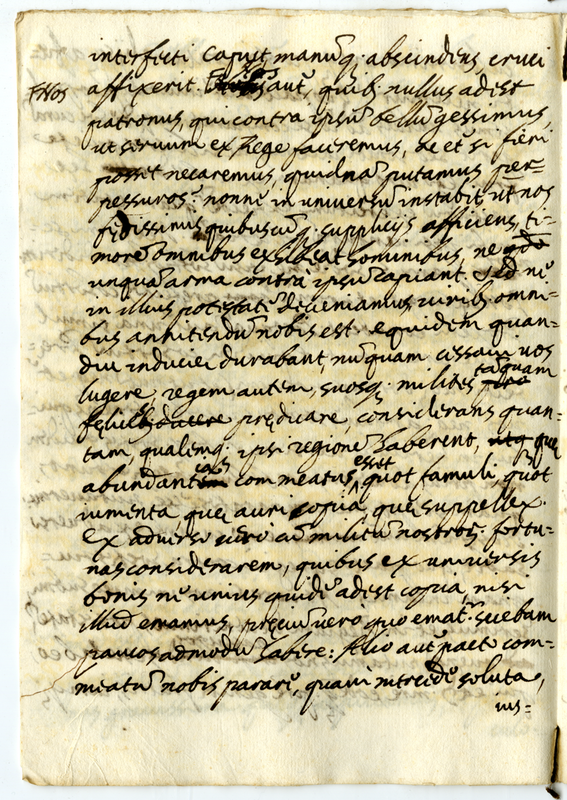 interfecti caput, manūq; abscindens cruci
affixerit. aut̄, quib; nullus adest
+Nos
patronus, qui contra ipsū bellū gessimus,
ut servum ex Rege faceremus, ac et̄ si fieri
posset necaremus, quidnā putamus per=
pessuros? nonne in universū instabit, ut nos
fędissimus quibuscūq; supplicijs afficiens, ti=
morē omnibus exhibeat hominibus, ne
unquā arma contrà ipsū capiant. Sed nè
in illius potestatē deveniamus viribus omni=
bus annitendū nobis est. equidem quan=
diu induciæ durabant, nūquam cessavi vos
lugere, regem autem, suosq; milites tāquam
fęlices prędicare, considerans quan=
tam, qualemq; ipsi regionē haberent, quę
abundantes commeatus esset, quot famuli, quot
iumenta, quę auri copia, quę suppellex.
Ex adverso verò cū militū nostror̄ fortu=
nas considerarem, quibus ex universis
bonis ne unius quidē adest copia, nisi
illud emamus, pręciū verò quo emat̄ sciebam
paucos admodū habere: Alio aut̄ pacto com=
meatū nobis parare, quàm mercede soluta,
ius=